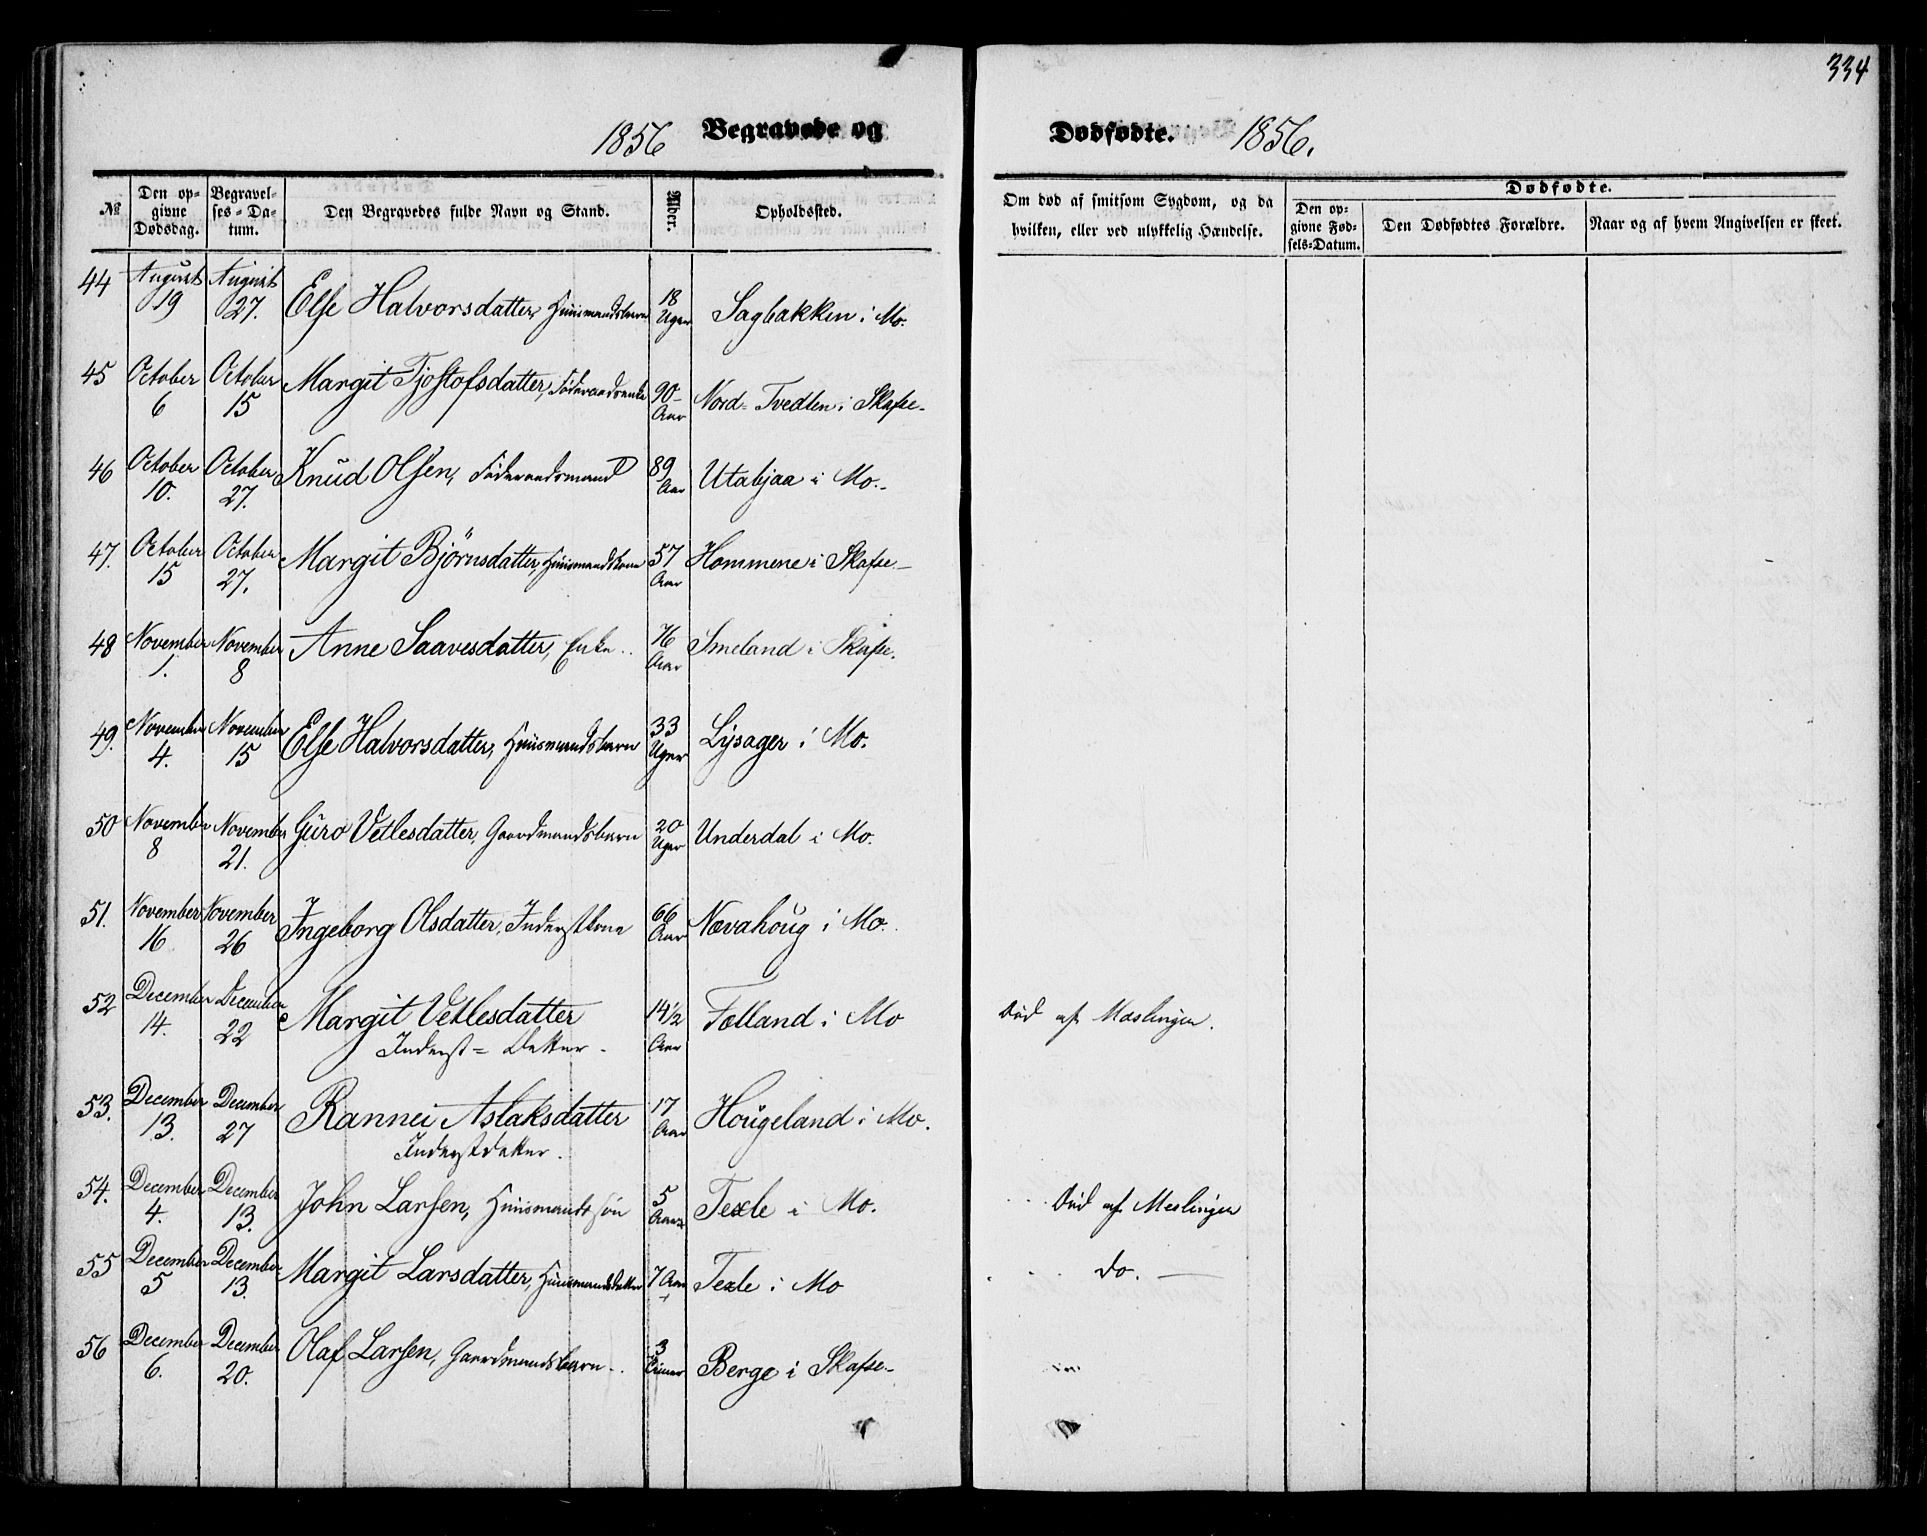 334
1856 Begravede og Dødfødte. 1856.
№ Den opgivne Dødsdag. Begravelses-Datum. Den Begravedes fulde Navn og Stand. Alder. Opholdssted. Om død af smitsom Sygdom, og da hvilken, eller ved ulykkelig Hændelse. Dødfødte. Den opgivne Fødsels-Datum. Den Dødfødtes Forældre. Naar og af hvem Angivelsen er skeet.
44 August 19 August 27. Else Halvorsdatter, Huusmandsbarn 18 Uger Sagbakken i Mo.
45 October 6 October 15 Margit Tjostofsdatter, Føderaadsenke 90 Aar Nord-Tvedten i Skafse
46 October 10. October 27. Knud Olsen, Føderaadsmand 89 Aar Utabjaa i Mo.
47. October 15 October 27. Margit Bjørnsdatter, Huusmandskone 57 Aar Hommene i Skafse
48 November 1. November 8 Anne Saavesdatter, Enke 76 Aar Smeland i Skafse.
49. November 4. November 15 Else Halvorsdatter, Huusmandsbarn 33 Uger Lysager i Mo.
50 November 8 November 21. Guro Vetlesdatter, Gaardmandsbarn 20 Uger Underdal i Mo.
51. November 16 November 26 Ingeborg Olsdatter, Inderstkone 66 Aar Nævahoug i Mo.
52 December 14. December 22 Margit Vetlesdatter 14½ Aar Felland i Mo Død af Mæslinger.
Inderst-Datter
53. December 13. December 27 Rannei Aslaksdatter 17 Aar Hougeland i Mo.
Inderstdatter.
54. December 4. December 13. John Larsen, Huusmandssøn 5 Aar Texle i Mo. Død af Meslinger
55 December 5 December 13. Margit Larsdatter, Huusmandsdatter 7 Aar Texle i Mo do.
56 December 6. December 20. Olaf Larsen, Gaardmandsbarn 3 Timer Berge i Skafse